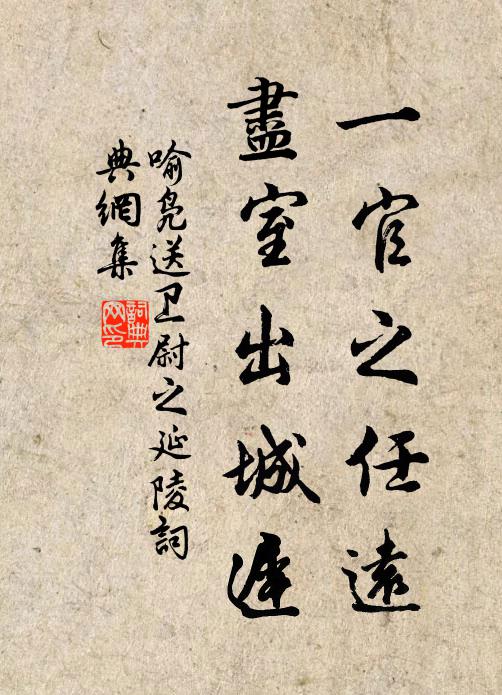 一官之任遠
盡室出城遲
喻鳧送卫尉之延陵詞
典網集
詞典
网印